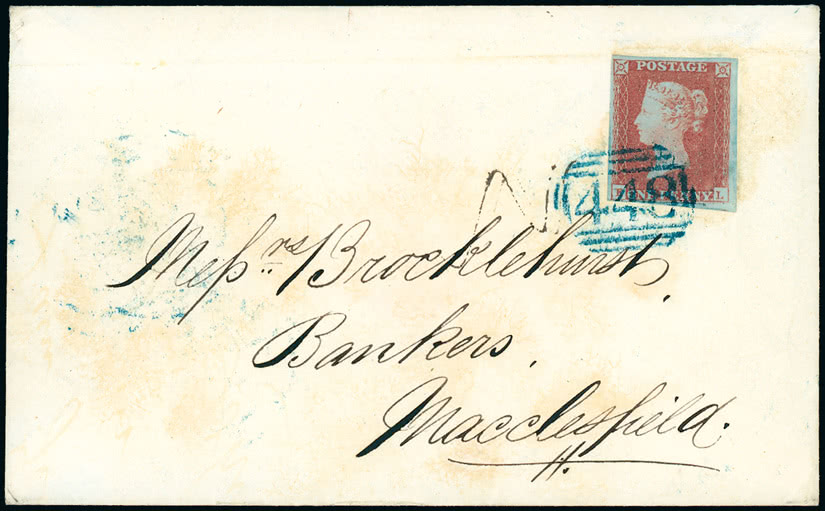 POSTAGE
448
Messrs Brocklehurst,
Bankers,
Macclesfield.